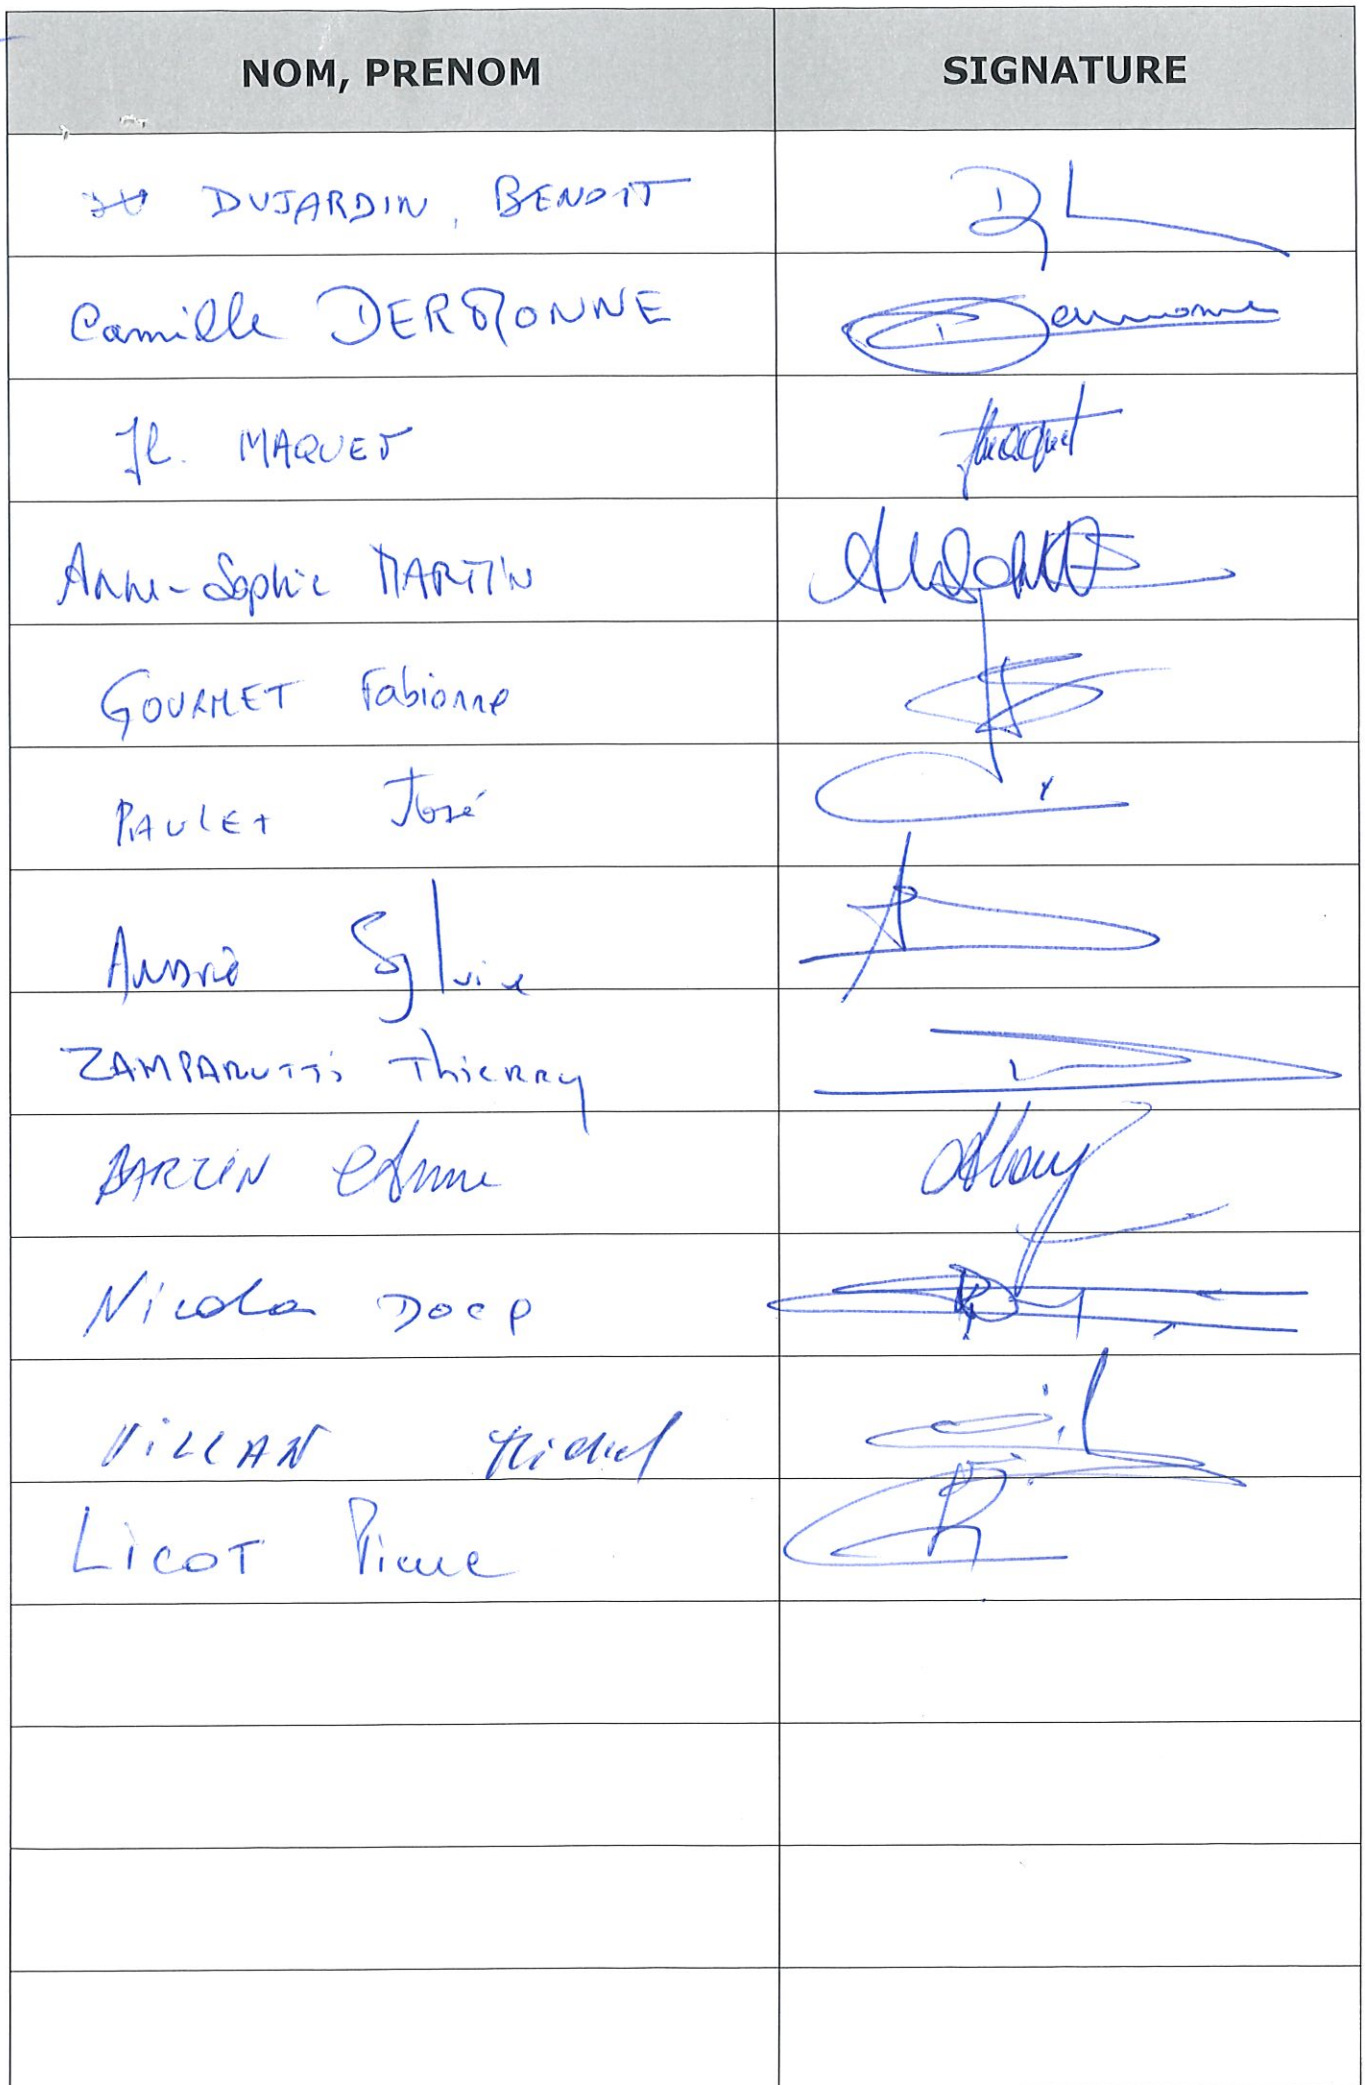 NOM, PRENOM SIGNATURE
DUJARDIN, BENOIT
Camille DERMONNE Dermonne
JL. MAQUET Jmaquet
Anne-Sophie MARTIN
GOURMET Fabienne
PAULET José
André Sylvie
ZAMPARUTTI Thierry
BARZIN Anne
DOEP
Michel
LICOT Pierre